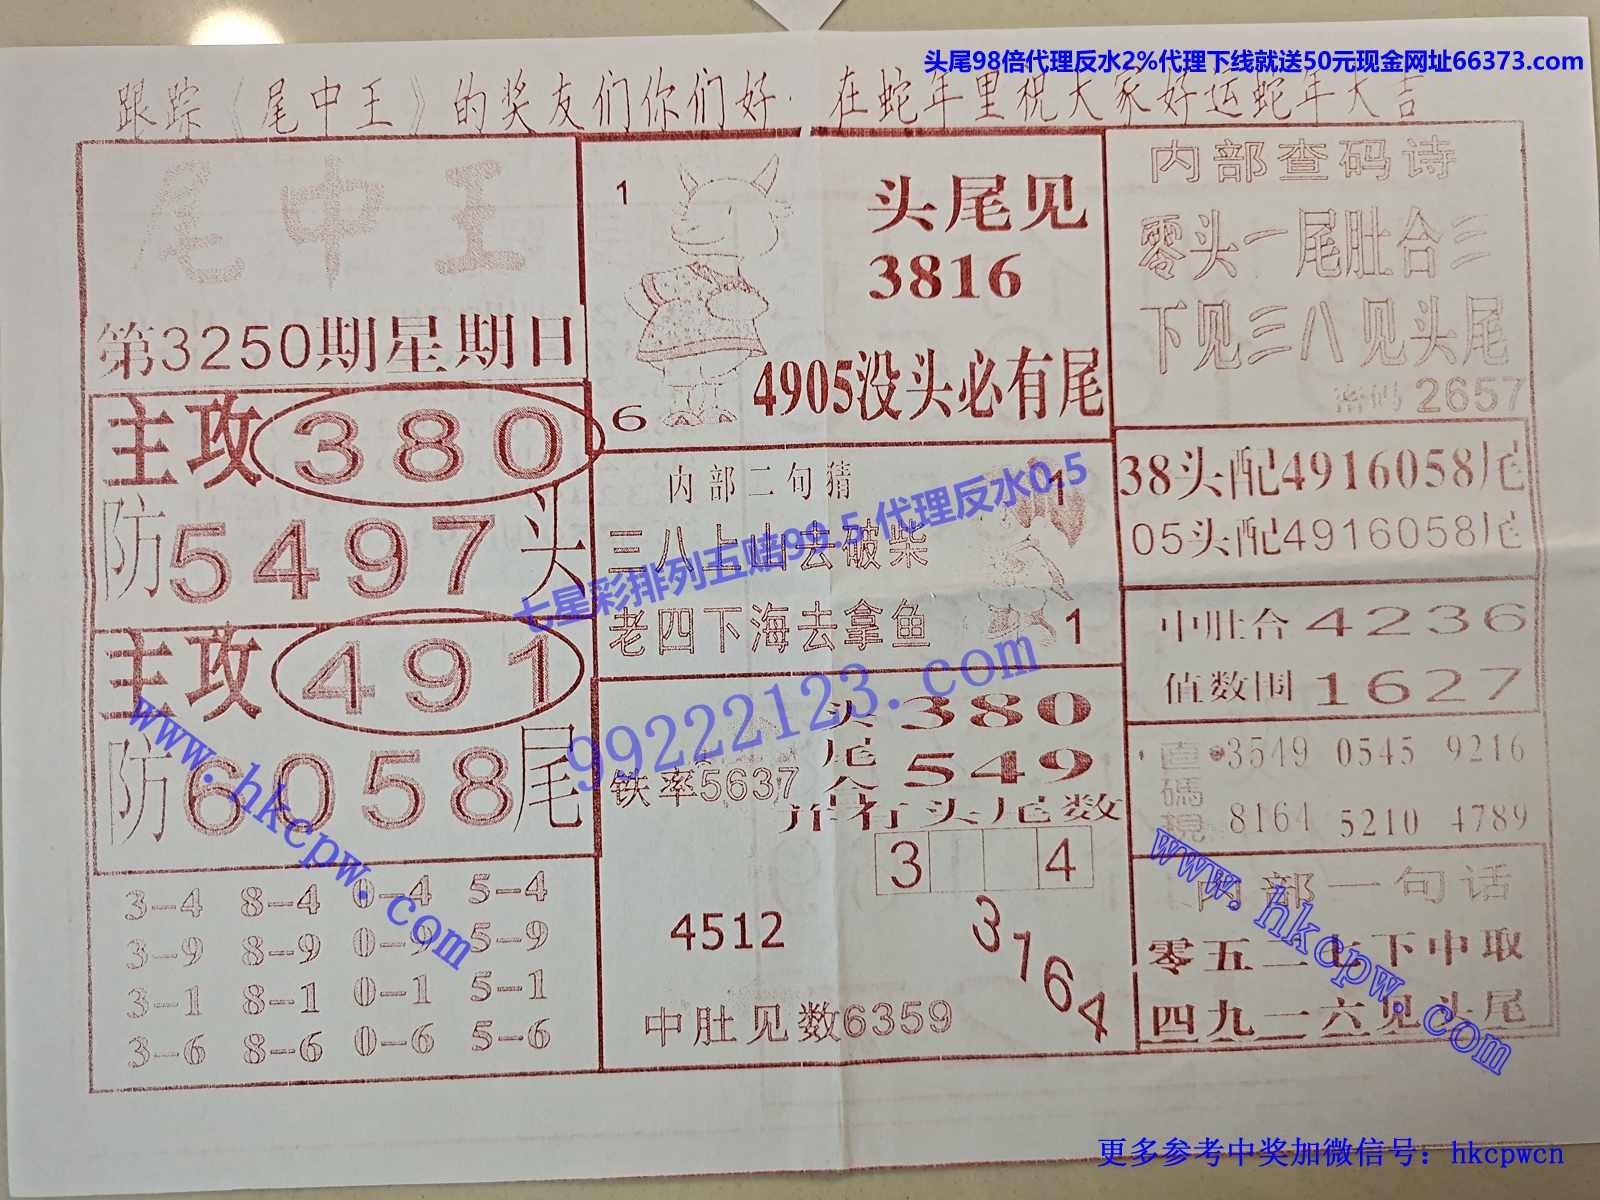 头尾98倍代理反水2%代理下线就送50元现金网址66373.com
跟踪《尾中王》的奖友们你们好·在蛇年里祝大家好运蛇年大吉
尾中王
第3250期星期日
主攻380
防5497头
主攻491
防6058尾
3-4 8-4 0-4 5-4
3-9 8-9 0-9 5-9
3-1 8-1 0-1 5-1
3-6 8-6 0-6 5-6
1
头尾见
3816
6
4905没头必有尾
内部二句猜
三八上山去破柴
老四下海去拿鱼
1
1
七星彩排列五赔99.5代理反水0.5
99222123.com
头380
尾549
铁率5637
并有头尾数
3 4
4512
3164
中肚见数6359
内部查码诗
零头一尾肚合三
下见三八见头尾
密码2657
38头配4916058尾
05头配4916058尾
中肚合4236
值数围1627
直碼現
3549 0545 9216
8164 5210 4789
内部一句话
零五二七下中取
四九一六见头尾
www.hkcpw.com
www.hkcpw.com
更多参考中奖加微信号：hkcpwcn